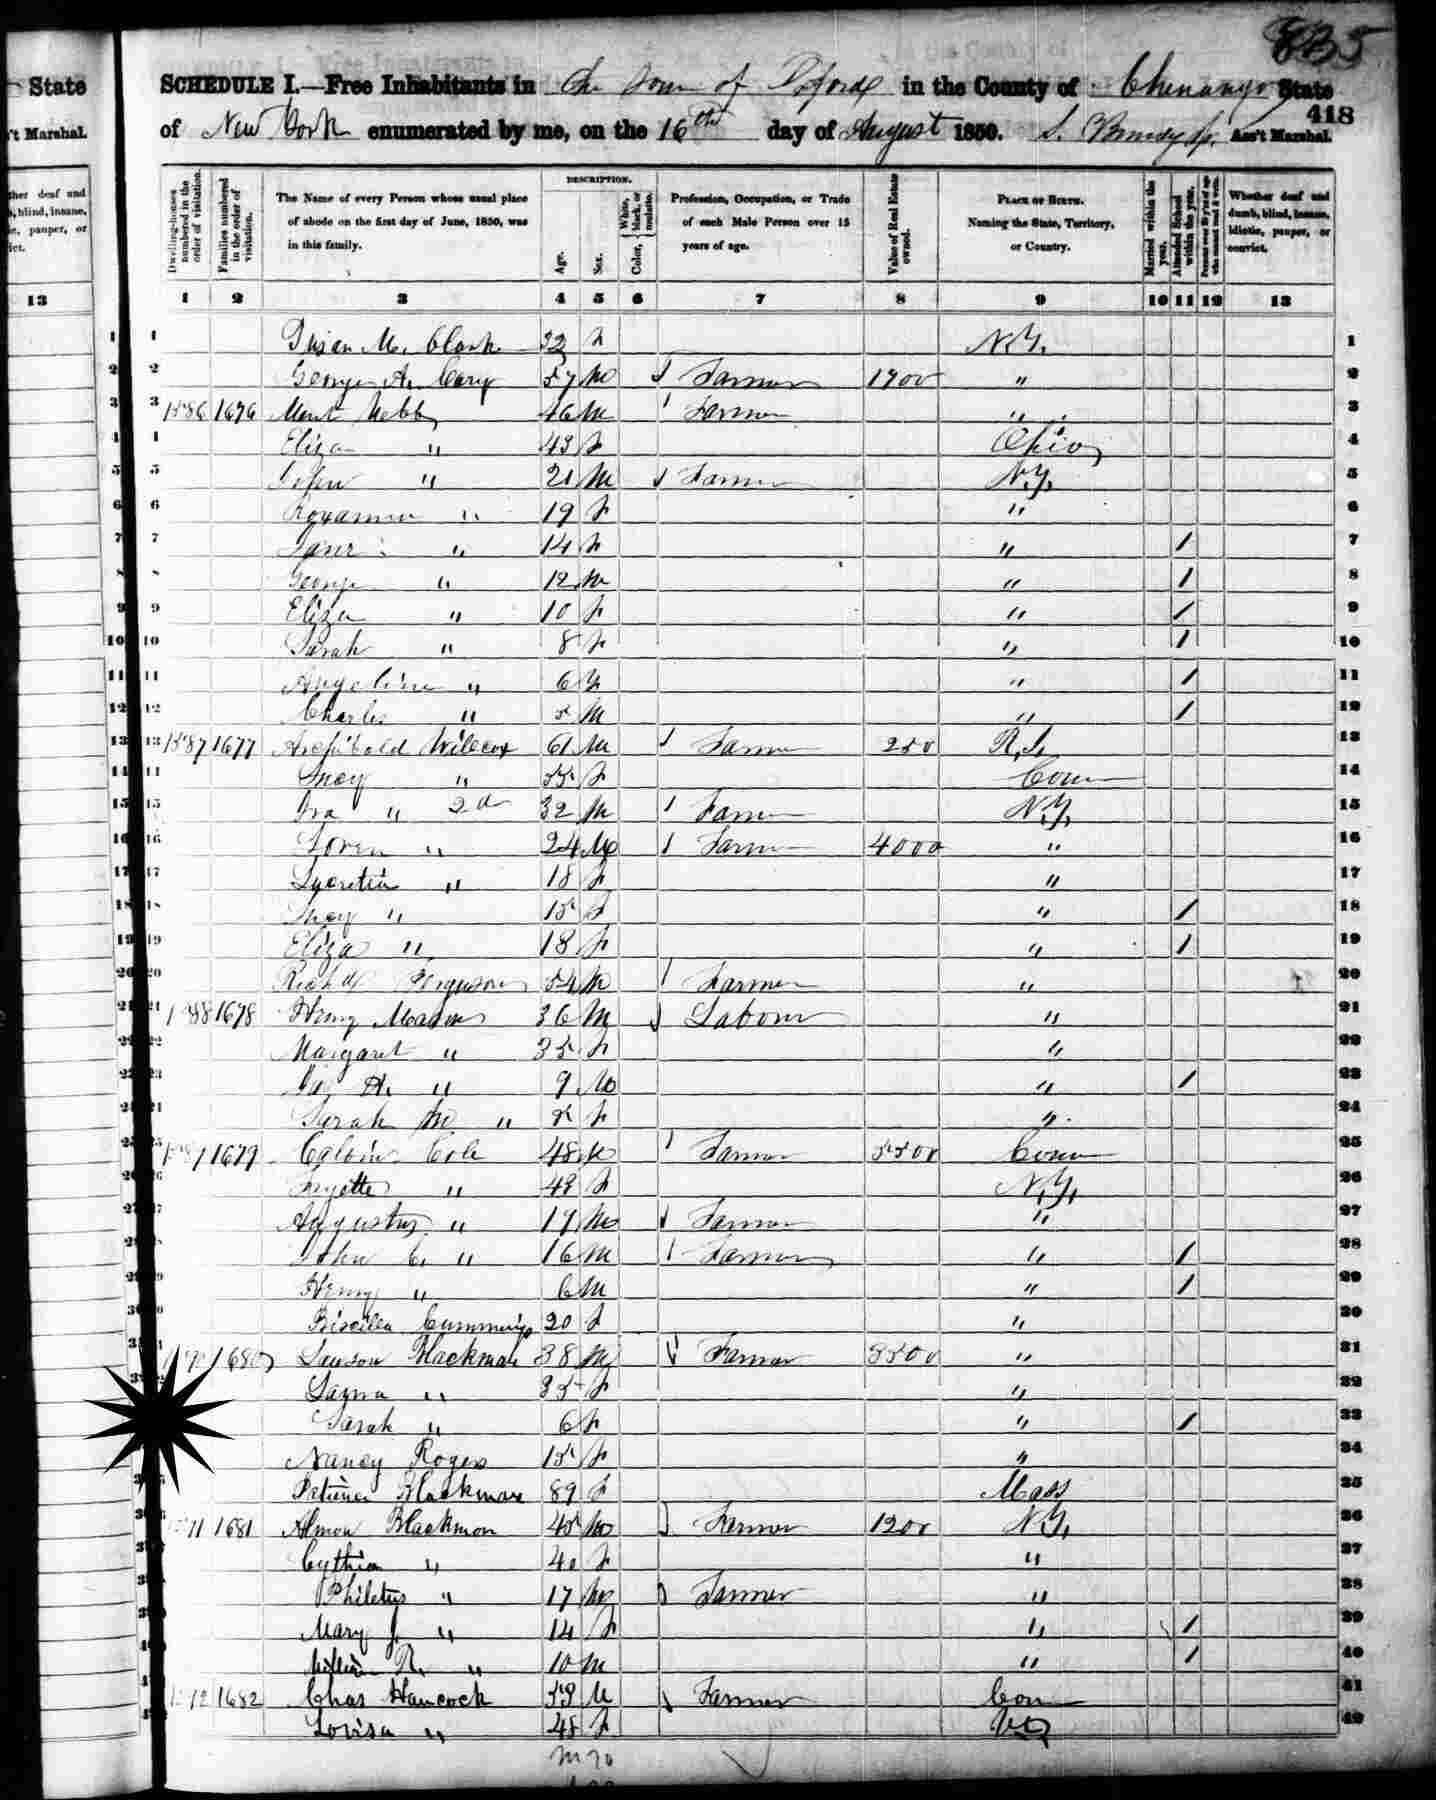 State
't Marshal.
ther deaf and
, blind, insane,
ic, pauper, or
ict.
13
835
SCHEDULE I.—Free Inhabitants in the Town of Oxford in the County of Chenango State
of New York enumerated by me, on the 16th day of August 1850. Ass't Marshal.
418
Dwelling-houses numbered in the order of visitation.
Families numbered in the order of visitation.
The Name of every Person whose usual place of abode on the first day of June, 1850, was in this family.
DESCRIPTION.
Age.
Sex.
Color, { White, black, or mulatto.
Profession, Occupation, or Trade of each Male Person over 15 years of age.
Value of Real Estate owned.
PLACE OF BIRTH. Naming the State, Territory, or Country.
Married within the year.
Attended School within the year.
Persons over 20 y'rs of age who cannot read & write.
Whether deaf and dumb, blind, insane, idiotic, pauper, or convict.
1 2 3 4 5 6 7 8 9 10 11 12 13
1 Susan M. Clark 32 f N.Y. 1
2 George A. Cary 57 m Farmer 1700 " 2
3 1586 1676 Webb 46 m Farmer " 3
4 Eliza " 43 f Ohio 4
5 " 21 m Farmer N.Y. 5
6 Roxanna " 19 f " 6
7 Jane " 14 f " / 7
8 George " 12 m " / 8
9 Eliza " 10 f " / 9
10 Sarah " 8 f " / 10
11 Angeline " 6 f " / 11
12 Charles " 5 m " / 12
13 1587 1677 Archibald Wilcox 61 m Farmer 250 R.I. 13
14 " 55 f Conn 14
15 Ira " 2d 32 m Farmer N.Y. 15
16 Loren " 24 m Farmer 4000 " 16
17 Lucretia " 18 f " 17
18 " 15 f " / 18
19 Eliza " 18 f " / 19
20 Ferguson 54 m Farmer " 20
21 1588 1678 Henry Mason 36 m Labourer " 21
22 Margaret " 35 f " 22
23 " 9 m " / 23
24 Sarah M " f " 24
25 1679 Calvin Cole 48 m Farmer 5500 Conn 25
26 " 48 f N.Y. 26
27 Augustus " 17 m Farmer " 27
28 John C. " 16 m Farmer " / 28
29 Henry " 6 m " / 29
30 Priscilla Cummings 20 f " 30
31 1680 Blackman 38 m Farmer 3500 " 31
32 " 35 f " 32
33 Sarah " 6 f " / 33
34 Nancy Rogers 15 f " 34
35 Patience Blackman 89 f Mass 35
36 1681 Almon Blackmon 45 m Farmer 1200 N.Y. 36
37 Cythia " 40 f " 37
38 Philetus " 17 m Farmer " 38
39 Mary J. " 14 f " / 39
40 William R. " 10 m " / 40
41 1682 Chas Hancock 53 m Farmer Con 41
42 Lovisa " 48 f Vt 42
m 20